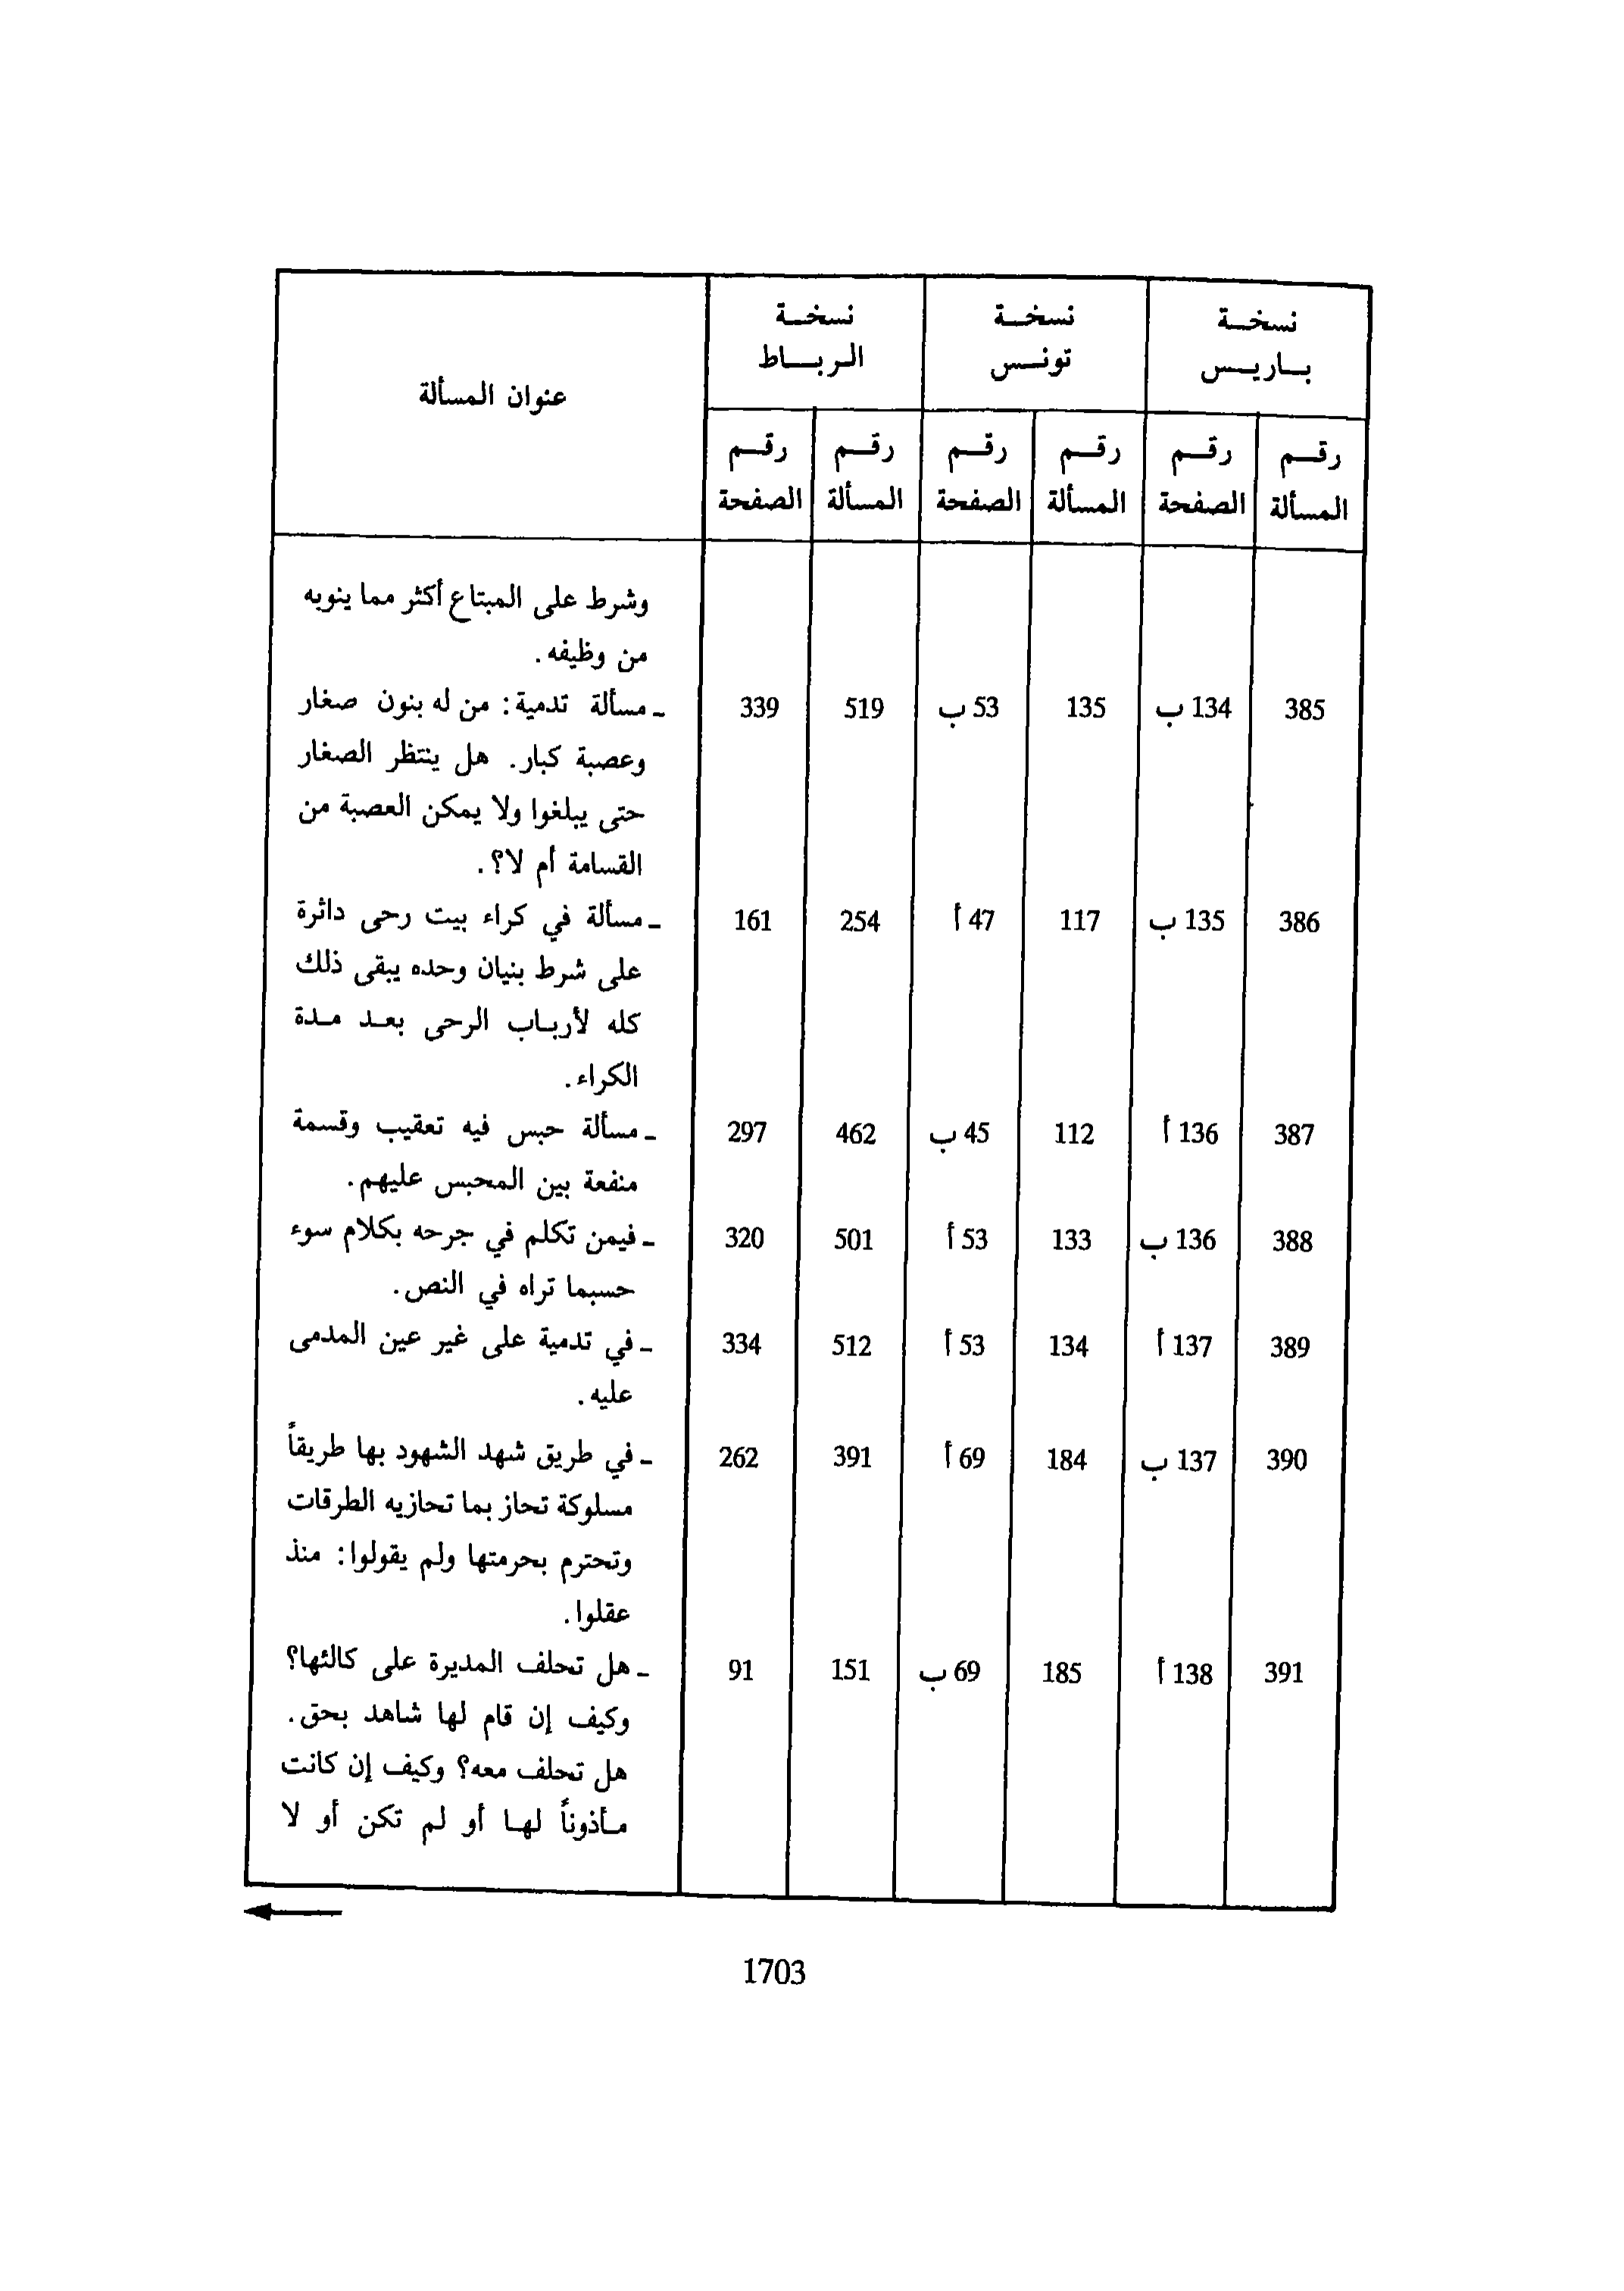 نسخة نسخة نسخة
باريس تونس الرباط عنوان المسألة
رقم رقم رقم رقم رقم رقم
المسألة الصفحة المسألة الصفحة المسألة الصفحة
وشرط على المبتاع أكثر مما ينوبه
من وظيفه.
385 134 ب 135 53 ب 519 339 ـ مسألة تدمية: من له بنون صغار
وعصبة كبار. هل ينتظر الصغار
حتى يبلغوا ولا يمكن العصبة من
القسامة أم لا؟.
386 135 ب 117 47 أ 254 161 ـ مسألة في كراء بيت رحى دائرة
على شرط بنيان وحده يبقى ذلك
كله لأرباب الرحى بعد مدة
الكراء.
387 136 أ 112 45 ب 462 297 ـ مسألة حبس فيه تعقيب وقسمة
منفعة بين المحبس عليهم.
388 136 ب 133 53 أ 501 320 ـ فيمن تكلم في جرحه بكلام سوء
حسبما تراه في النص.
389 137 أ 134 53 أ 512 334 ـ في تدمية على غير عين المدمى
عليه.
390 137 ب 184 69 أ 391 262 ـ في طريق شهد الشهود بها طريقاً
مسلوكة تحاز بما تحازيه الطرقات
وتحترم بحرمتها ولم يقولوا: منذ
عقلوا.
391 138 أ 185 69 ب 151 91 ـ هل تحلف المديرة على كالئها؟
وكيف إن قام لها شاهد بحق.
هل تحلف معه؟ وكيف إن كانت
مأذوناً لها أو لم تكن أو لا
1703